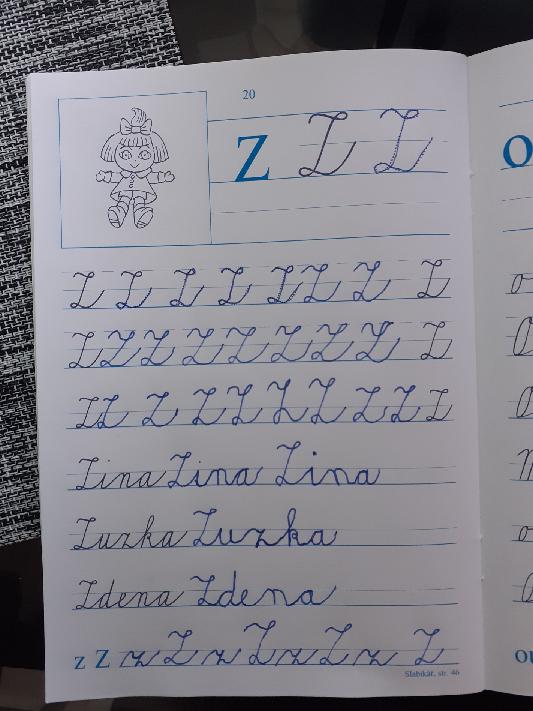 20
Z Z Z
Z Z Z Z Z Z Z Z
Z Z Z Z Z Z Z Z
Z Z Z Z Z Z Z Z Z Z
Zina Zina Zina
Zuzka Zuzka
Zdena Zdena
z Z z Z z Z z Z z Z
Slabikář, str. 46